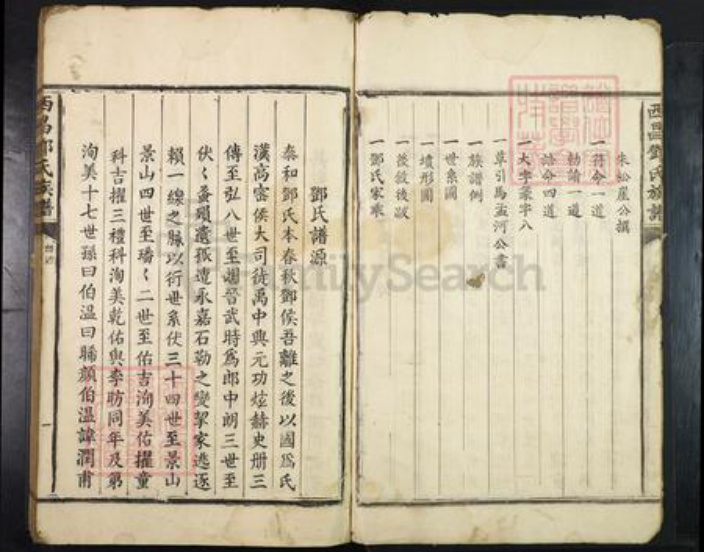 西昌鄧氏族譜
朱松崖公撰
一符命一道
一勅諭一道
一誥命四道
一大字篆字八
一草引馬孟河公書
一族譜例
一世系圖
一墳形圖
一舊敘後跋
一鄧氏家乘
FamilySearch
鄧氏譜源
泰和鄧氏本春秋鄧侯吾離之後以國爲氏
漢高密侯大司徒禹中興元功炫赫史冊三
傳至弘八世至颺晉武時爲郎中朗三世至
伏〻蚤殞遺孤遭永嘉石勒之變挈家逃逐
賴一線之脉以衍世系伏三十四世至景山
景山四世至璠〻二世至佑吉洵美佑擢童
科吉擢三禮科洵美乾佑與李昉同年及第
洵美十七世孫曰伯温曰晞顏伯温諱潤甫
西昌鄧氏族譜